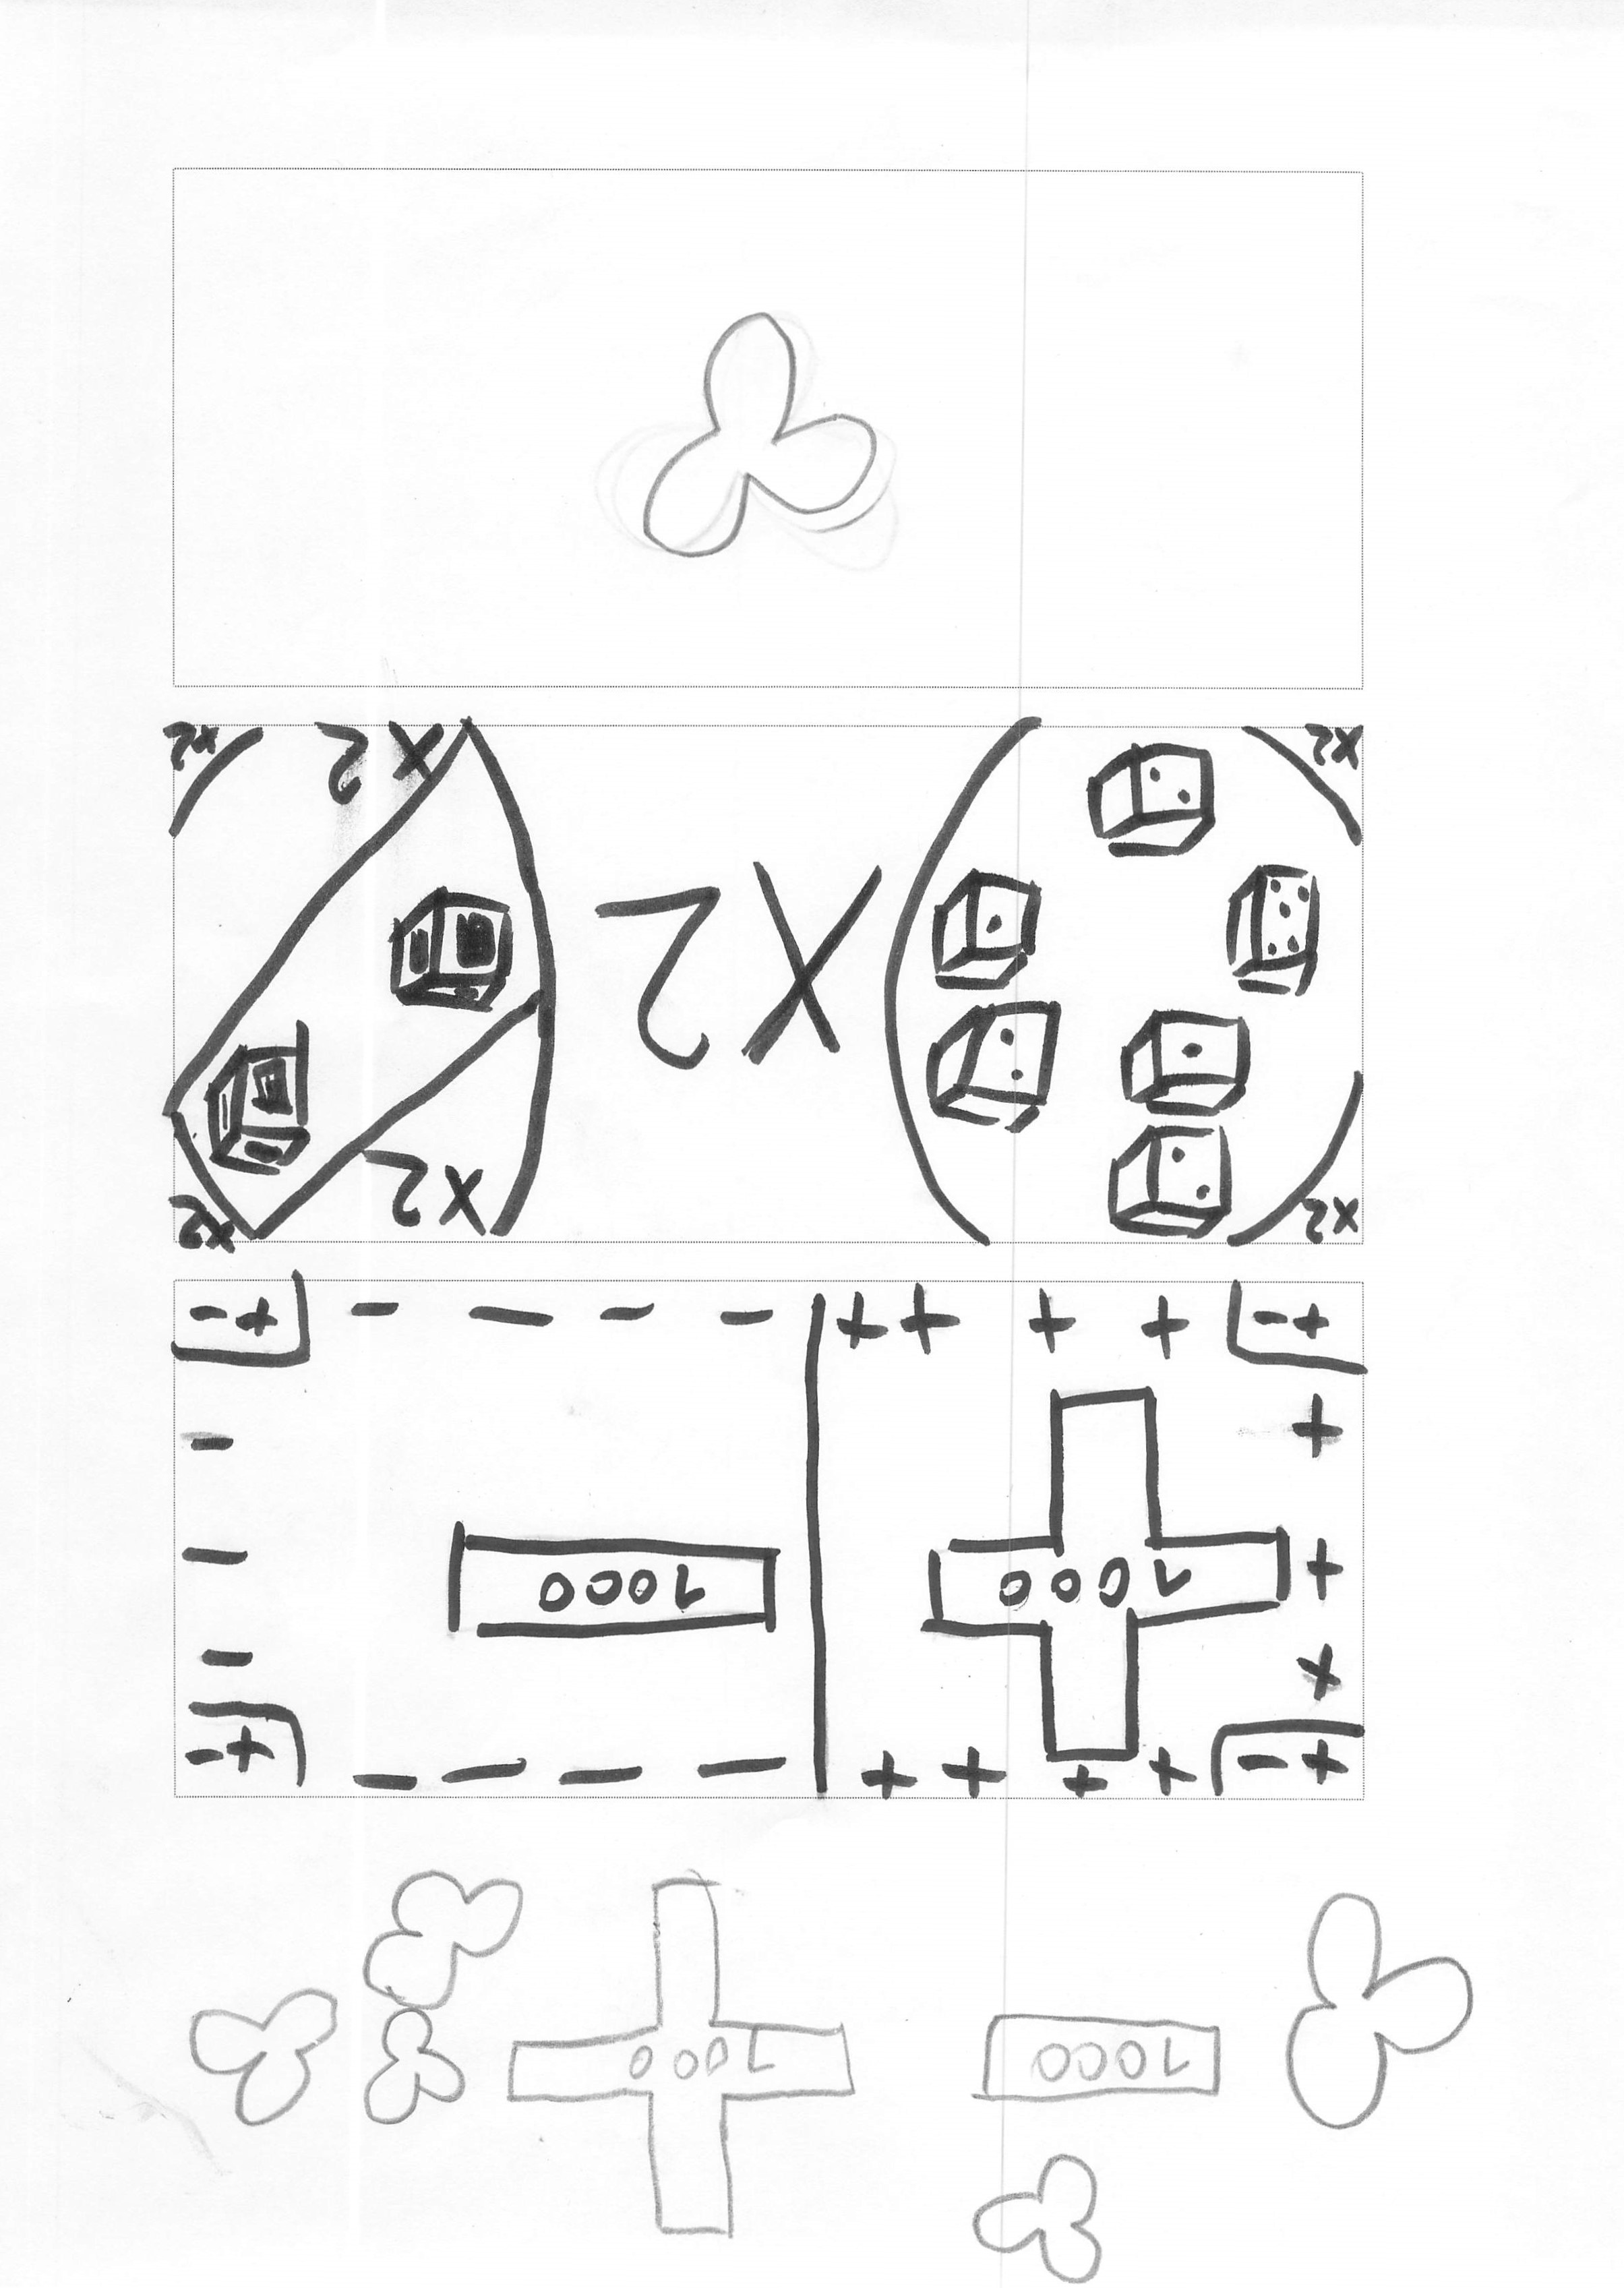 1000 1000
+ - + + + + - - - - + -
+ -
+ 1000 1000 -
+ -
+ - + + + + - - - - + -
x2 x2 x2
x2
x2 x2 x2